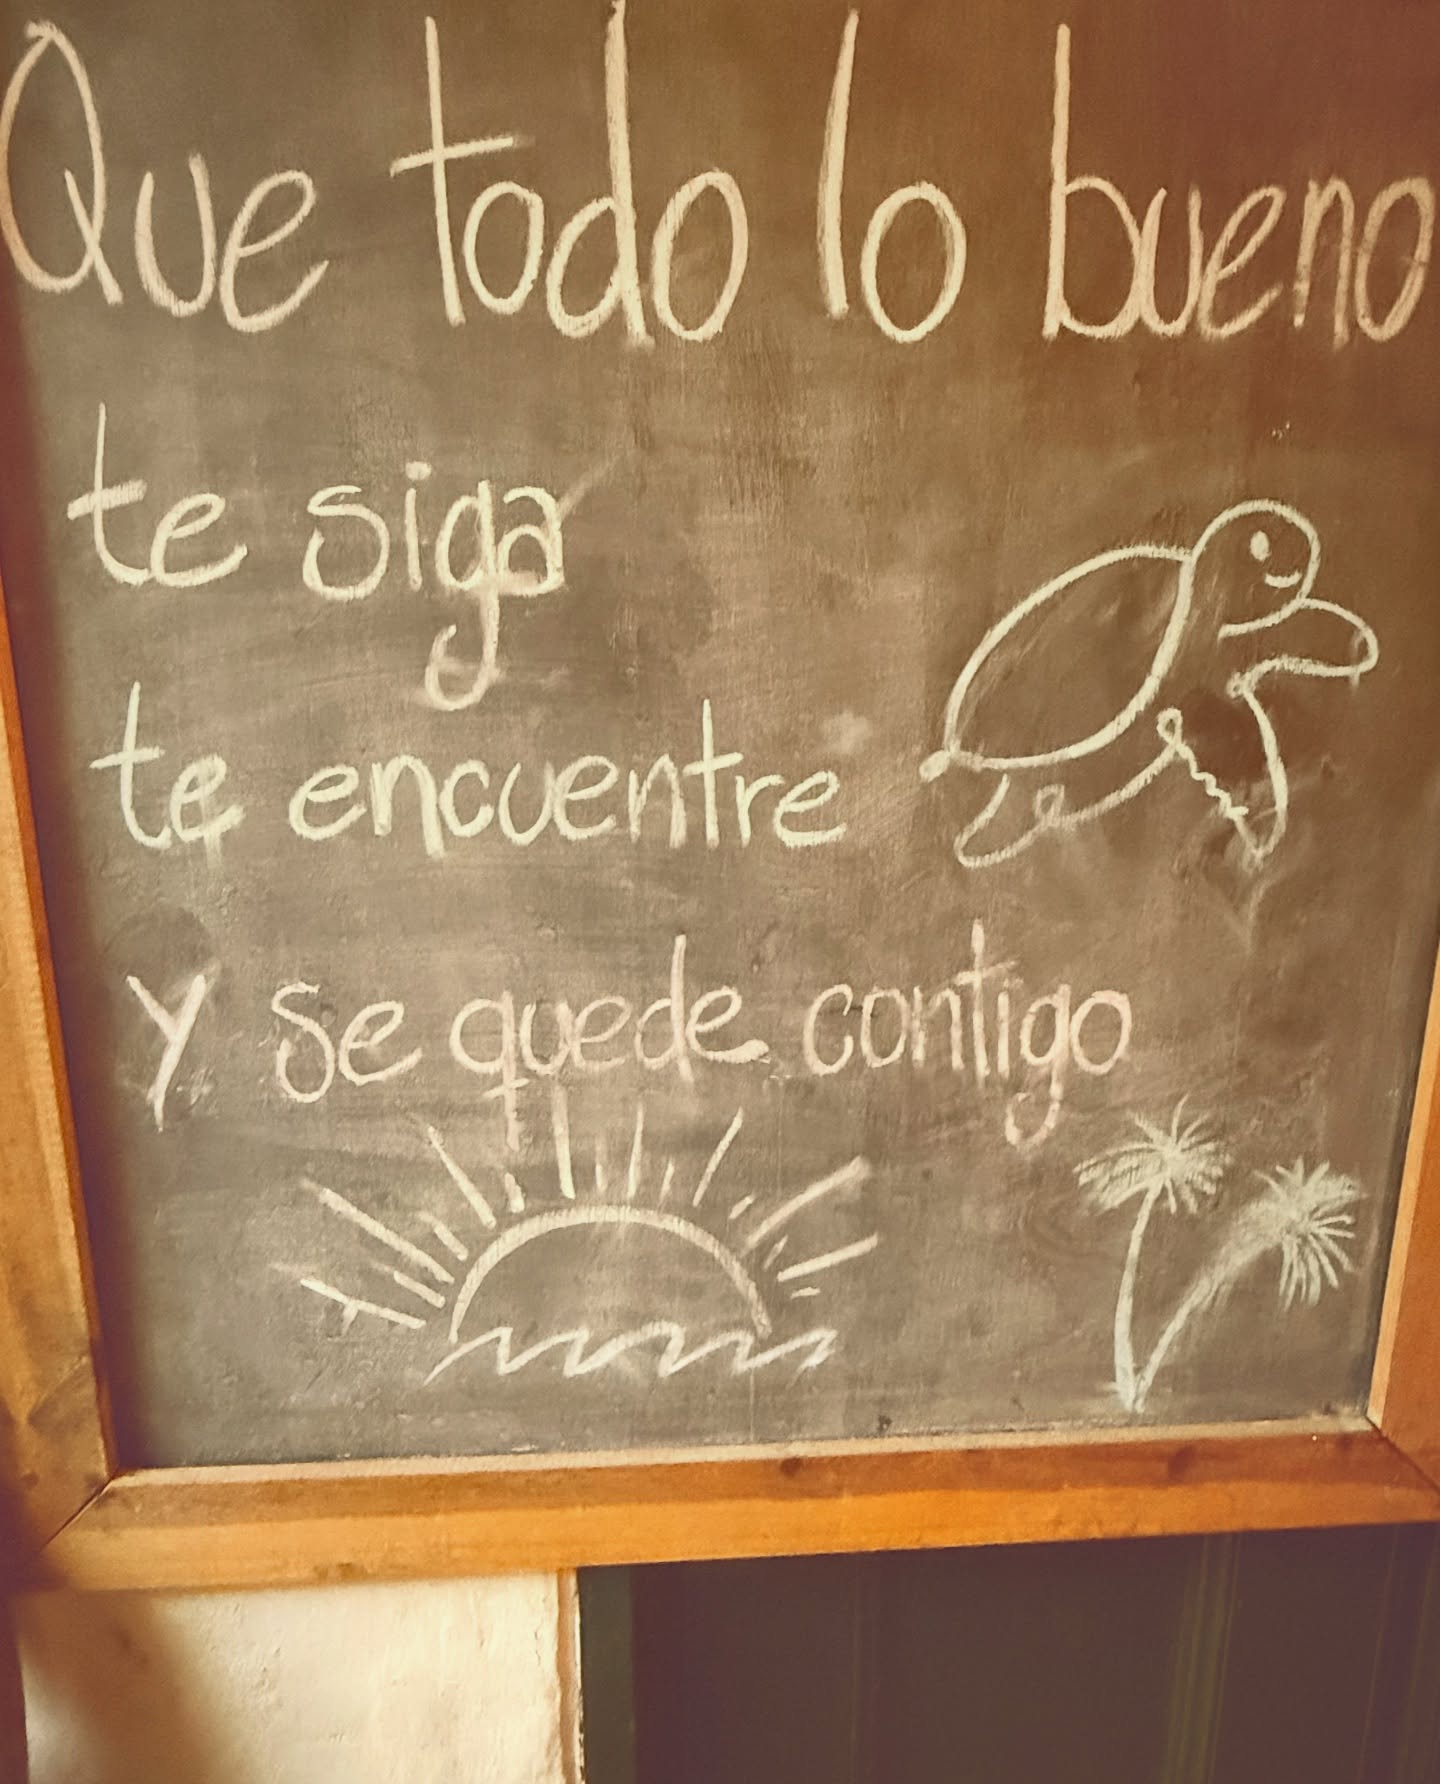 Que todo lo bueno
te siga
te encuentre
y se quede contigo